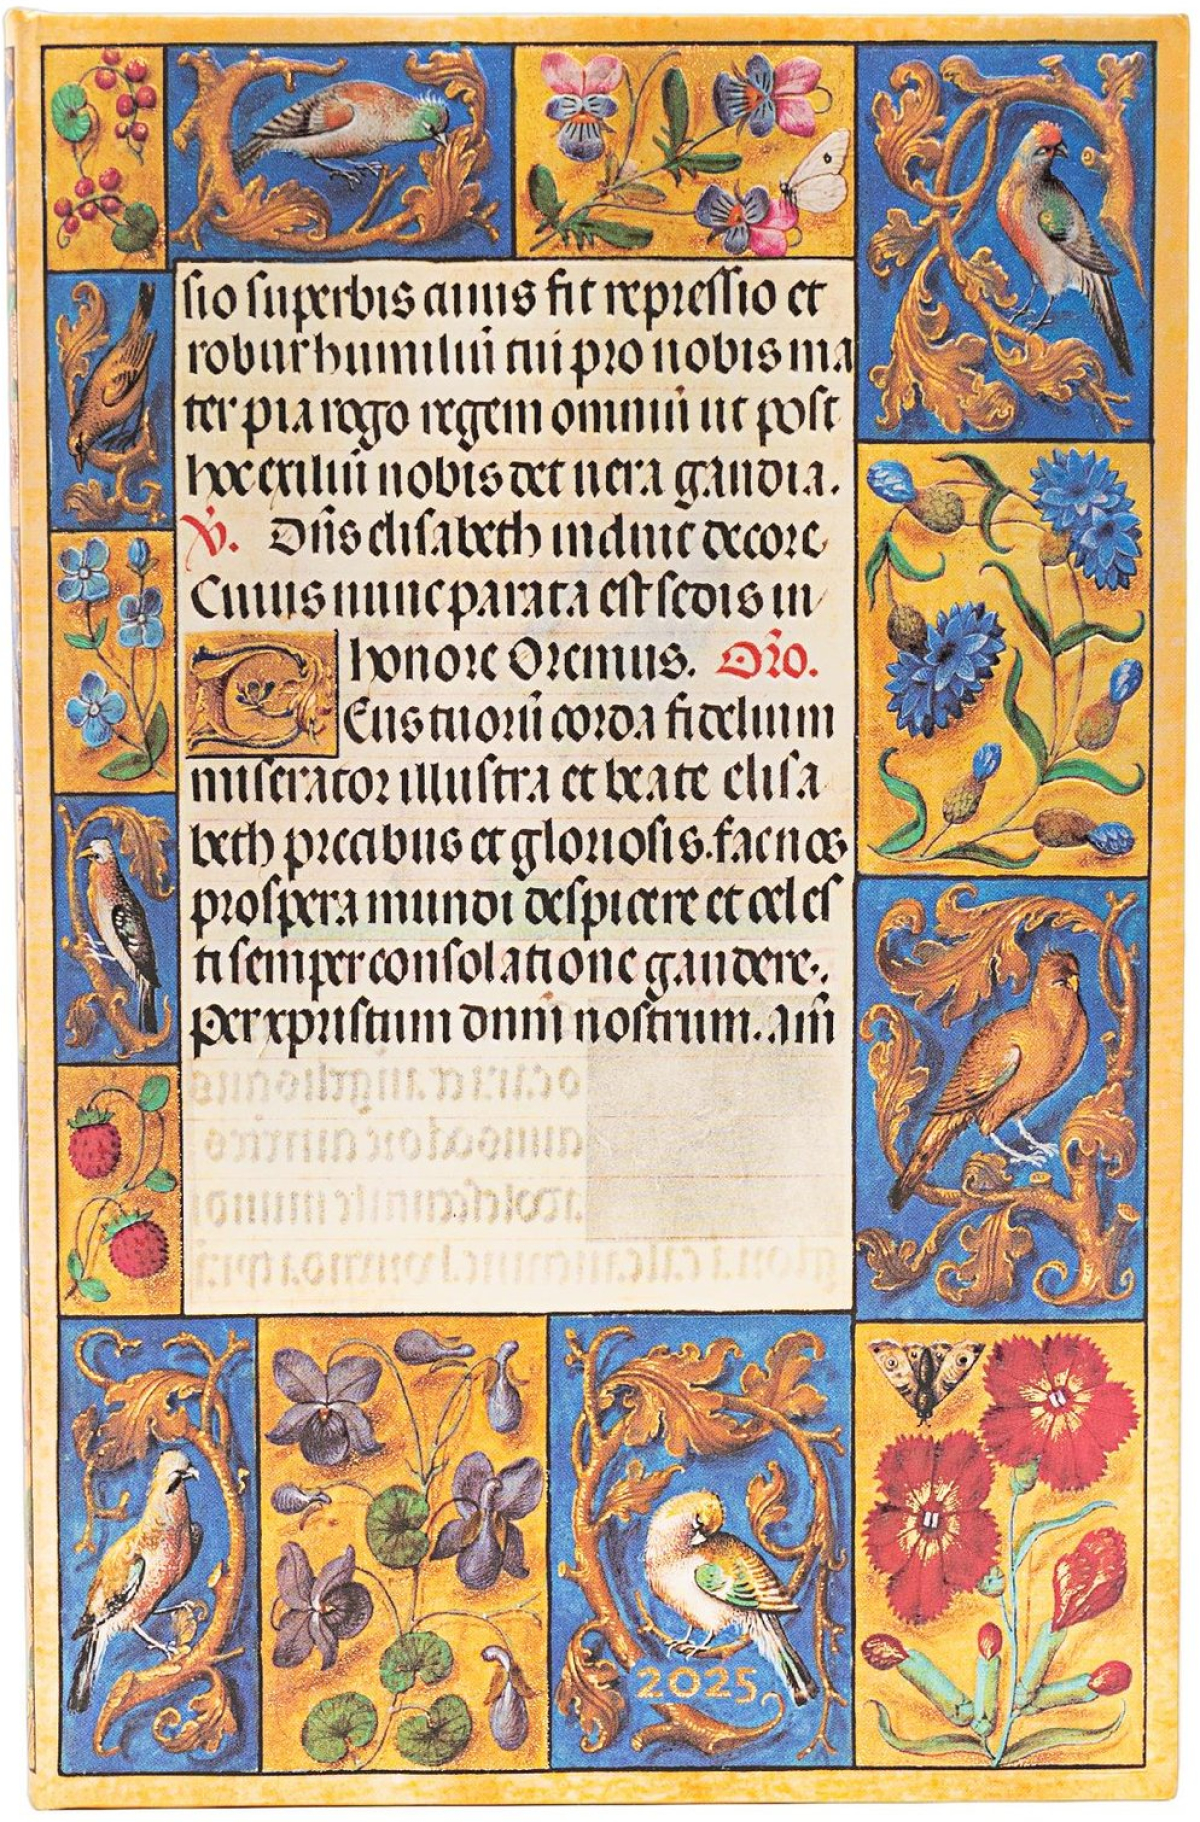 sio superbis cuius fit repressio et
robur humiliū tui pro nobis ma
ter pia rogo regem omniū ut post
hoc exiliū nobis det vera gaudia.
V̄. Dn̄s elisabeth induit decore
Cuius nunc parata est sedis in
honore Oremus. Or̄o.
Deus tuorū corda fidelium
miserator illustra et beate elisa
beth precibus et gloriosis. fac nos
prospera mundi despicere et celes
ti semper consolatione gaudere.
Per xpristum dnm̄ nostrum. Am̄
2025